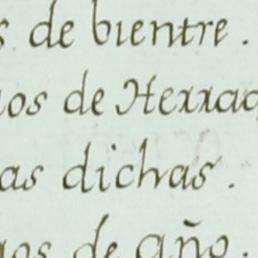 s de bientre.
os de Herrad
as dichas.
gos de año.